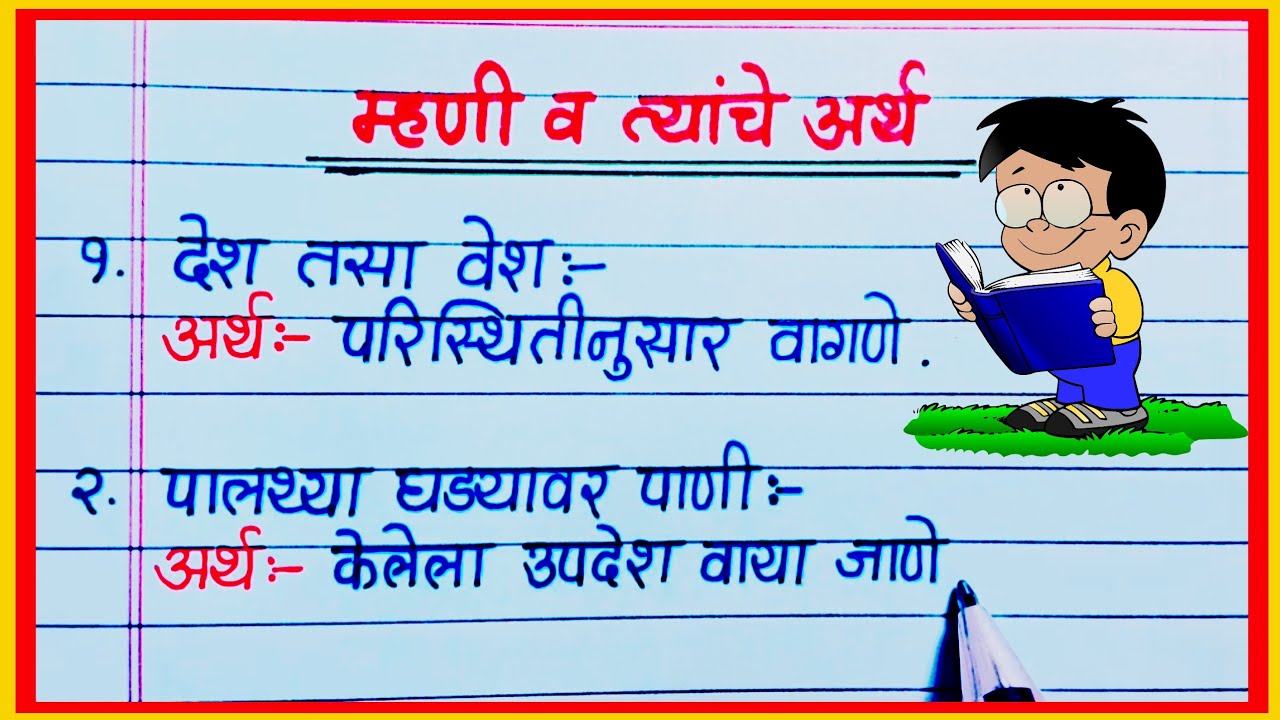 म्हणी व त्यांचे अर्थ
१. देश तसा वेश:-
अर्थ:- परिस्थितीनुसार वागणे.
२. पालथ्या घड्यावर पाणी:-
अर्थ:- केलेला उपदेश वाया जाणे